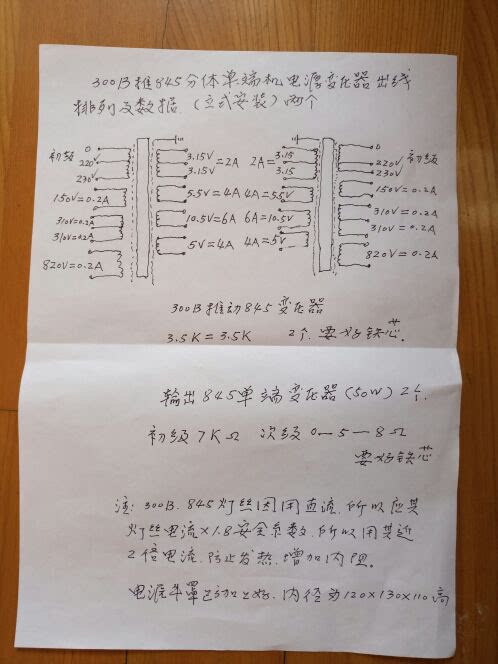 300B推845分体单端机电源变压器出线
排列及数据.(立式安装)两个
初级 0
220V
230V
150V=0.2A
310V=0.2A
310V=0.2A
820V=0.2A
3.15V
3.15V
=2A
5.5V=4A
10.5V=6A
5V=4A
2A=
3.15
3.15
4A=5.5V
6A=10.5V
4A=5V
0 初级
220V
230V
150V=0.2A
310V=0.2A
310V=0.2A
820V=0.2A
300B推动845变压器
3.5K=3.5K 2个.要好铁芯.
输出845单端变压器(50W)2个.
初级7KΩ 次级0-5-8Ω
要好铁芯
注:300B.845灯丝因用直流.所以应其
灯丝电流×1.8安全系数.所以用其近
2倍电流.防止发热.增加内阻。
电源牛罩已加工好.内径为120×130×110高